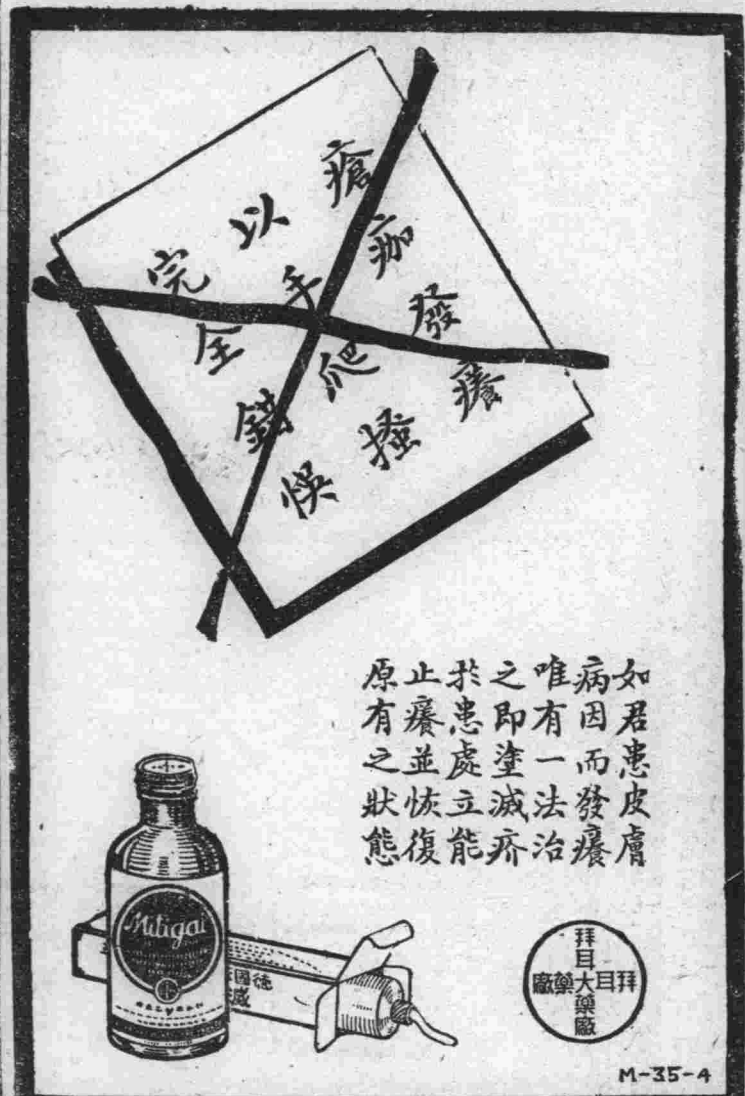 瘡痂發癢
以手爬搔
完全錯悞
如君患皮膚
病因而發癢
唯有一法治
之即塗滅疥
於患處立能
止癢並恢復
原有之狀態
Mitigal
德國
拜耳大藥廠
拜耳大藥廠
M-35-4